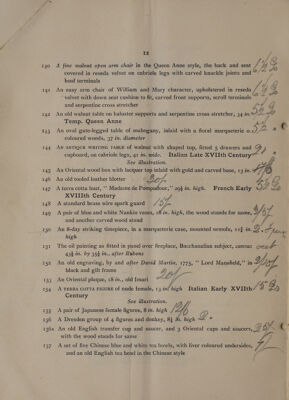 12
140 A fine walnut open arm chair in the Queen Anne style, the back and seat
covered in reseda velvet on cabriole legs with carved knuckle joints and
hoof terminals
141 An easy arm chair of William and Mary character, upholstered in reseda
velvet with down seat cushion to fit, carved front supports, scroll terminals
and serpentine cross stretcher
142 An old walnut table on baluster supports and serpentine cross stretcher, 34 in.
Temp. Queen Anne
143 An oval gate-legged table of mahogany, inlaid with a floral marqueterie of
coloured woods, 37 in. diameter
144 AN ANTIQUE WRITING TABLE of walnut with shaped top, fitted 3 drawers and
cupboard, on cabriole legs, 41 in. wide. Italian Late XVIIth Century
See illustration.
145 An Oriental wood box with lacquer top inlaid with gold and carved base, 13 in.
146 An old tooled leather blotter
147 A terra cotta bust, " Madame de Pompadour," 29½ in. high. French Early
XVIIIth Century
148 A standard brass wire spark guard 15/-
149 A pair of blue and white Nankin vases, 18 in. high, the wood stands for same,
and another carved wood stand
150 An 8-day striking timepiece, in a marqueterie case, mounted ormolu, 11½ in.
high
151 The oil painting as fitted in panel over fireplace, Bacchanalian subject, canvas
43½ in. by 35½ in., after Rubens
152 An old engraving, by and after David Martin, 1775, " Lord Mansfield," in
black and gilt frame
153 An Oriental plaque, 18 in., old Imari 20/-
154 A TERRA COTTA FIGURE of nude female, 13 in. high Italian Early XVIIth
Century
See illustration.
155 A pair of Japanese female figures, 8 in. high 12/6
156 A Dresden group of 4 figures and donkey, 8½ in. high
156A An old English transfer cup and saucer, and 3 Oriental cups and saucers,
with the wood stands for same
157 A set of five Chinese blue and white tea bowls, with liver coloured undersides,
and an old English tea bowl in the Chinese style